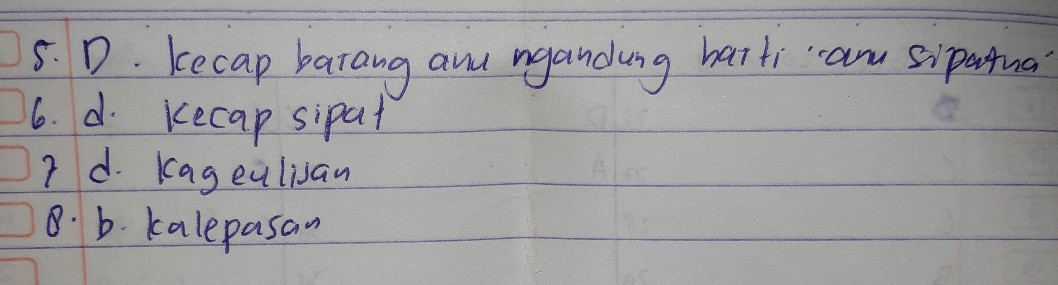 5. D. kecap barang anu ngandung harti "anu sipatna"
6. d. kecap sipat
7 d. kageulisan
8. b. kalepasan